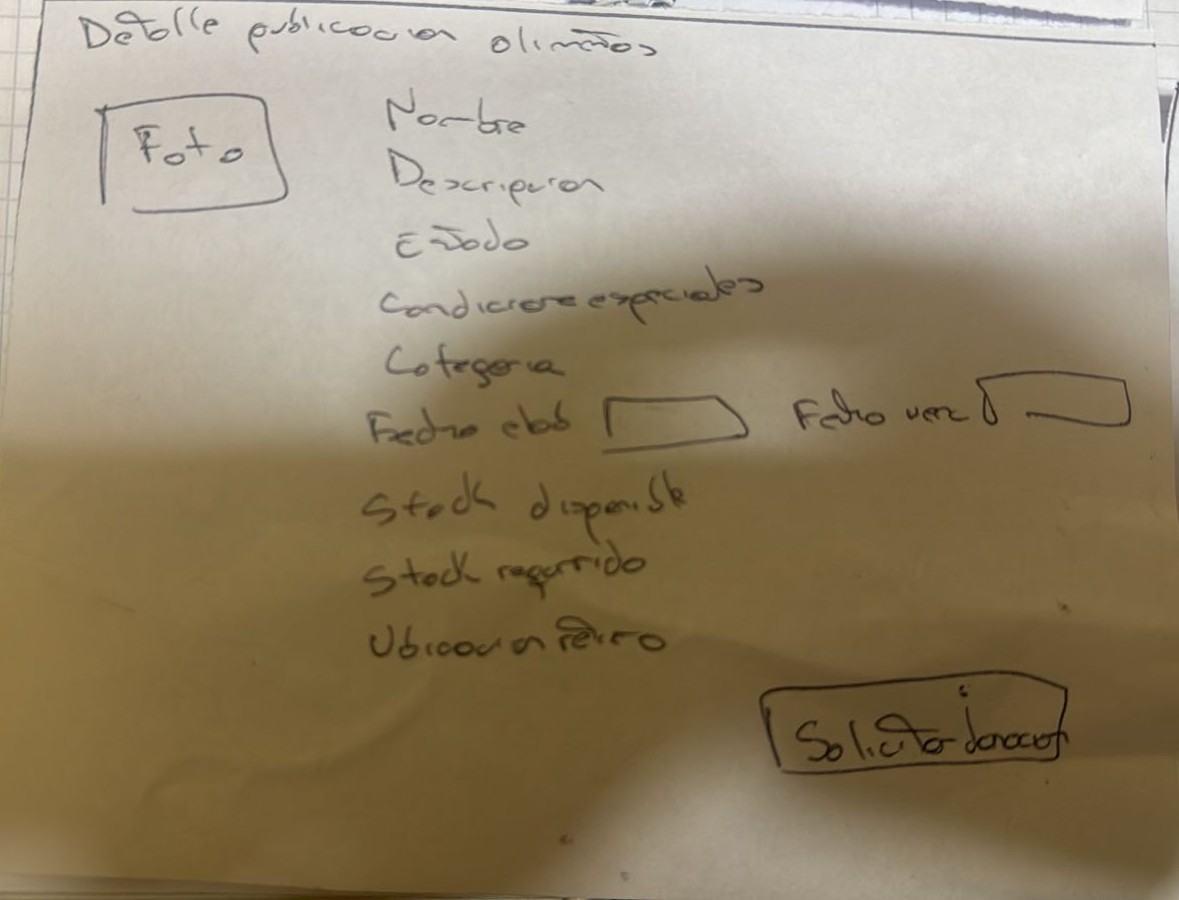 Detalle publicacion alimentos
Foto
Nombre
Descripcion
Estado
Condiciones especiales
Categoria
Fecha elab
Fecha venc
Stock disponible
Stock requerido
Ubicacion retiro
Solicitar donacion